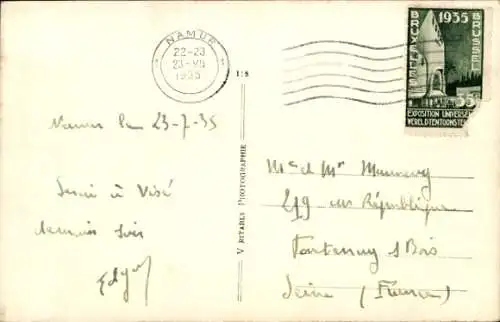 NAMUR
22-23
23-VII
1935
1935
BRUXELLES
BRUSSEL
35c
EXPOSITION UNIVERSELLE
WERELDTENTOONSTELLING
118
VERITABLE PHOTOGRAPHIE
Namur le 23-7-35
Serai à Visé
demain soir
Edgar
Me et Mr
219 av République
Fontenay s Bois
Seine (France)